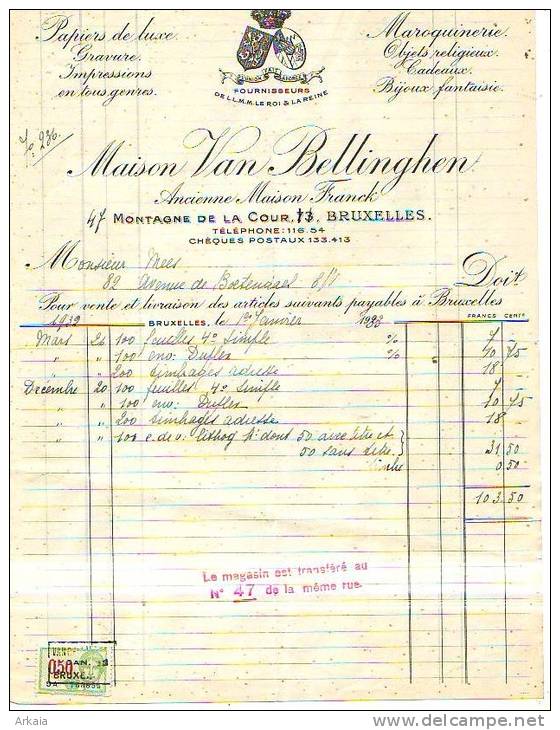 Papiers de luxe.
Gravure.
Impressions
en tous genres.
L'UNION FAIT LA FORCE
FOURNISSEURS
DE LL.M.M. LE ROI & LA REINE
Maroquinerie.
Objets religieux.
Cadeaux.
Bijoux fantaisie.
Fo 236.
Maison Van Bellinghen
Ancienne Maison Franck
47 MONTAGNE DE LA COUR, 73, BRUXELLES.
TÉLÉPHONE: 116.54
CHÈQUES POSTAUX 133.413
Monsieur Mees
82 Avenue de
Doit
Pour vente et livraison des articles suivants payables à Bruxelles
1932 BRUXELLES, le 1er Janvier 1933 FRANCS CENTS
Mars 26 100 feuilles 4o simple % 7
" " 100 env: Duplex % 10 75
" " 200 timbrages adresse 18
Decembre 20 100 feuilles 4o simple 7
" " 100 env: Duplex 10 75
" " 200 timbrages adresse 18
" " 100 c. de v. lithog dont 50 avec titre et
50 sans titre } 31 50
timbre 0 50
103 50
Le magasin est transféré au
N° 47 de la même rue.
0.50
BRUXEL
Arkaia
www.delcampe.net